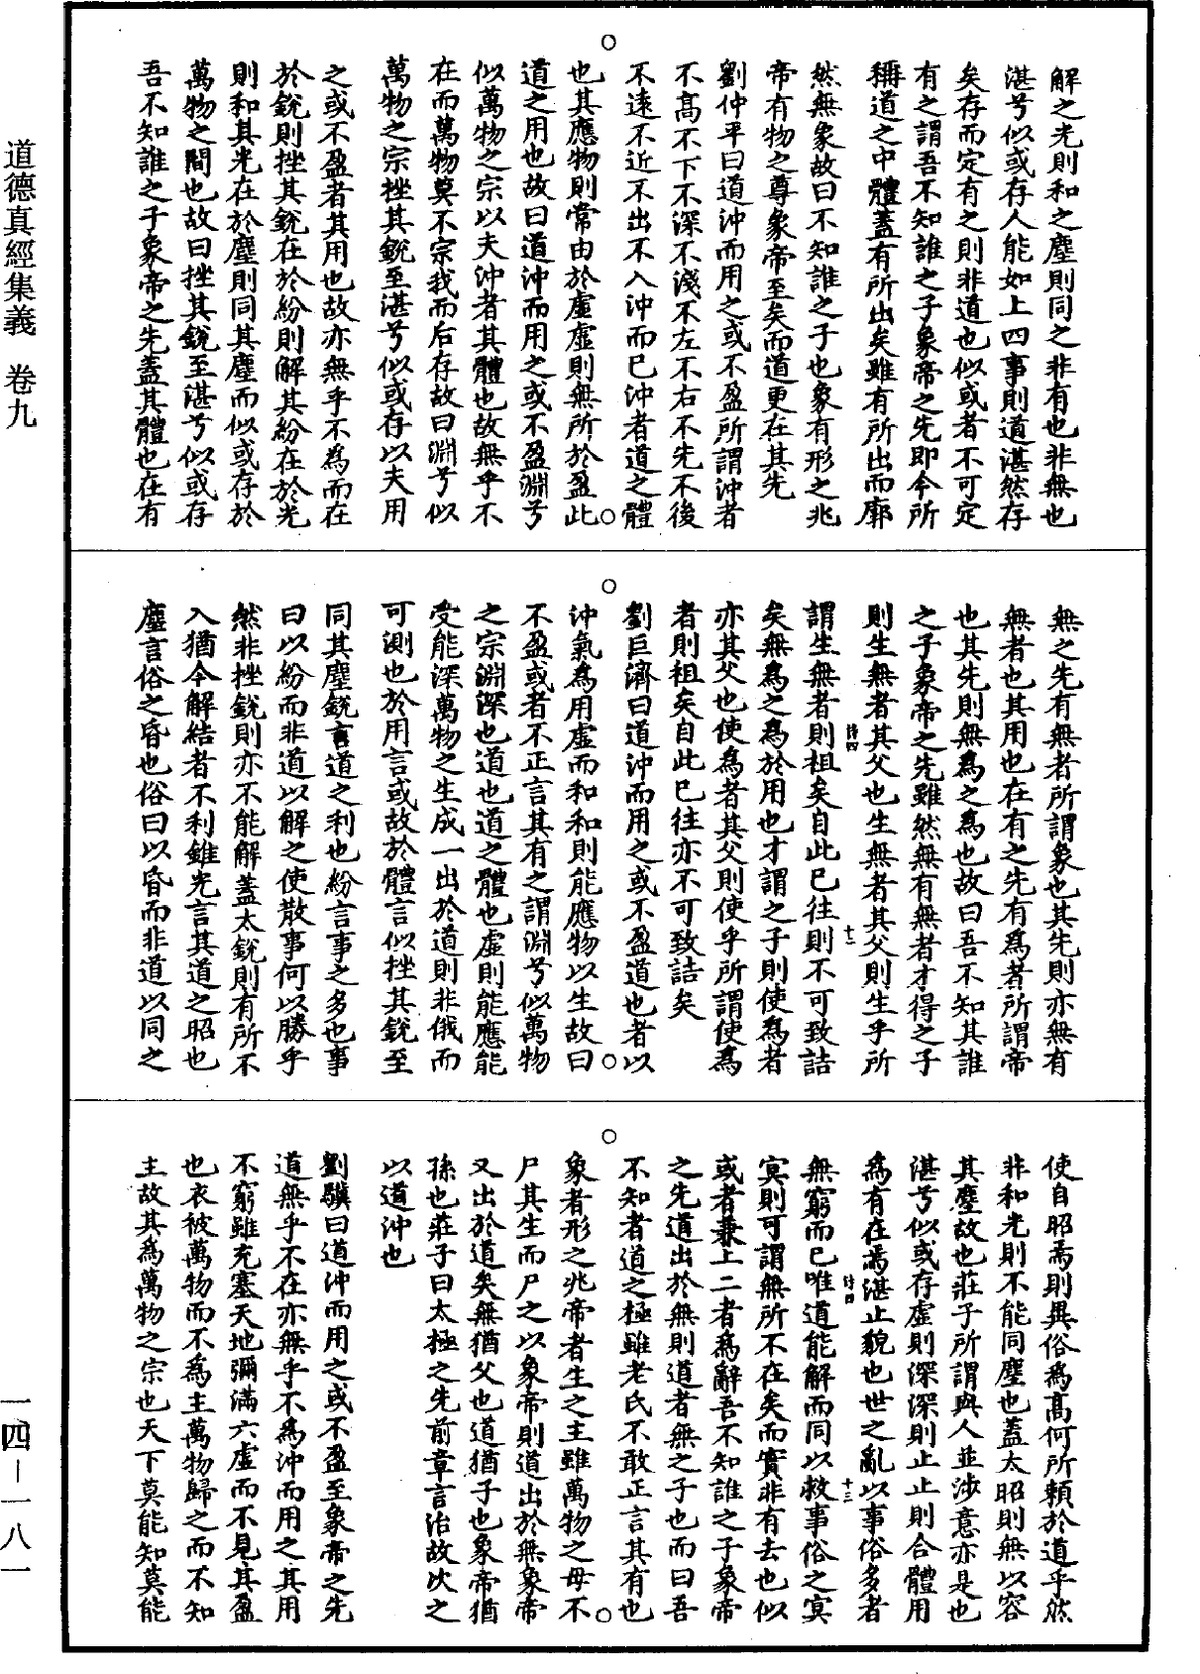 解之光則和之塵則同之非有也非無也
湛兮似或存人能如上四事則道湛然存
矣存而定有之則非道也似或者不可定
有之謂吾不知誰之子象帝之先即今所
稱道之中體蓋有所出矣雖有所出而廓
然無象故曰不知誰之子也象有形之兆
帝有物之尊象帝至矣而道更在其先
劉仲平曰道沖而用之或不盈所謂沖者
不高不下不深不淺不左不右不先不後
不遠不近不出不入沖而已沖者道之體
也其應物則常由於虛虛則無所於盈此
道之用也故曰道沖而用之或不盈淵兮
似萬物之宗以夫沖者其體也故無乎不
在而萬物莫不宗我而后存故曰淵兮似
萬物之宗挫其銳至湛兮似或存以夫用
之或不盈者其用也故亦無乎不為而在
於銳則挫其銳在於紛則解其紛在於光
則和其光在於塵則同其塵而似或存於
萬物之間也故曰挫其銳至湛兮似或存
吾不知誰之子象帝之先蓋其體也在有
無之先有無者所謂象也其先則亦無有
無者也其用也在有之先有為者所謂帝
也其先則無為之為也故曰吾不知其誰
之子象帝之先雖然無有無者才得之子
則生無者其父也生無者其父則生乎所
謂生無者則祖矣自此已往則不可致詰
矣無為之為於用也才謂之子則使為者
亦其父也使為者其父則使乎所謂使為
者則祖矣自此已往亦不可致詰矣
劉巨濟曰道沖而用之或不盈道也者以
沖氣為用虛而和和則能應物以生故曰
不盈或者不正言其有之謂淵兮似萬物
之宗淵深也道也道之體也虛則能應能
受能深萬物之生成一出於道則非俄而
可測也於用言或故於體言似挫其銳至
同其塵銳言道之利也紛言事之多也事
曰以紛而非道以解之使散事何以勝乎
然非挫銳則亦不能解蓋太銳則有所不
入猶今解結者不利錐光言其道之昭也
塵言俗之昏也俗曰以昏而非道以同之
使自昭焉則異俗為高何所賴於道乎然
非和光則不能同塵也蓋太昭則無以容
其塵故也莊子所謂與人並涉意亦是也
湛兮似或存虛則深深則止止則合體用
為有在焉湛止貌也世之亂以事俗多者
無窮而已唯道能解而同以救事俗之冥
冥則可謂無所不在矣而實非有去也似
或者兼上二者為辭吾不知誰之子象帝
之先道出於無則道者無之子也而曰吾
不知者道之極雖老氏不敢正言其有也
象者形之兆帝者生之主雖萬物之母不
尸其生而尸之以象帝則道出於無象帝
又出於道矣無猶父也道猶子也象帝猶
孫也莊子曰太極之先前章言治故次之
以道沖也
劉驥曰道沖而用之或不盈至象帝之先
道無乎不在亦無乎不為沖而用之其用
不窮雖充塞天地彌滿六虛而不見其盈
也衣被萬物而不為主萬物歸之而不知
主故其為萬物之宗也天下莫能知莫能
道德真經集義 卷九
一四－一八一